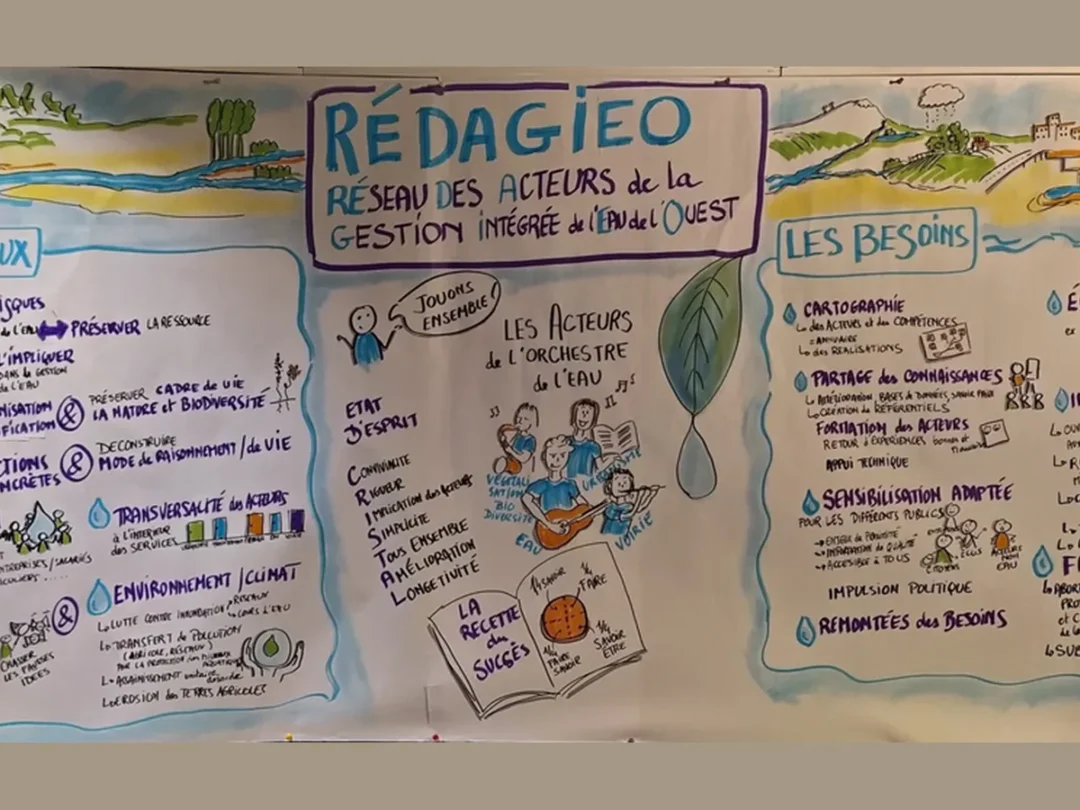 RÉDAGIEO
RÉSEAU DES ACTEURS de la
GESTION INTÉGRÉE de l'EAU de l'OUEST
UX
ISQUES
de l'EAU PRÉSERVER LA RESSOURCE
L'IMPLIQUER
DANS LA GESTION
de L'EAU
NISATION
IFICATION & PRÉSERVER CADRE de VIE
LA NATURE et BIODIVERSITÉ
CTIONS
NCRÈTES & DECONSTRUIRE
MODE de RAISONNEMENT / de VIE
TRANSVERSALITÉ des ACTEURS
à L'INTERIEUR
des SERVICES
ENTREPRISES / SALARIÉS
ICULIERS .....
&
ENVIRONNEMENT / CLIMAT
LUTTE CONTRE INONDATION RESEAUX
COURS d'EAU
TRANSFERT de POLLUTION
(AGRICOLE, RÉSEAUX)
PAR LA PROTECTION des
ASSAINISSEMENT
EROSION des TERRES AGRICOLES
CHASSER
LES FAUSSES
IDEES
JOUONS
ENSEMBLE!
LES ACTEURS
de L'ORCHESTRE
de L'EAU
ETAT
D'ESPRIT
CONVIVIALITE
RIGUEUR
IMPLICATION des ACTEURS
SIMPLICITE
TOUS ENSEMBLE
AMÉLIORATION
LONGETIVITÉ
VÉGETALI
SATION
BIO
DIVERSITÉ
URBANISME
EAU
VOIRIE
LA
RECETTE
du
SUCCÈS
1/4 SAVOIR
1/4 FAIRE
1/4
FAIRE
SAVOIR
1/4
SAVOIR
ÊTRE
LES BESOINS
CARTOGRAPHIE
des ACTEURS et des COMPÉTENCES
= ANNUAIRE
des RÉALISATIONS
PARTAGE des CONNAISSANCES
BASES de DONNÉES, SAVOIR FAIRE
CRÉATION de RÉFÉRENTIELS
FORMATION des ACTEURS
RETOUR d'EXPERIENCES bonnes et
APPUI TECHNIQUE
SENSIBILISATION ADAPTÉE
POUR LES DIFFÉRENTS PUBLICS
INFORMATION de QUALITÉ
ACCESSIBLE à TOUS
CITOYENS
ELUS
ACTEURS
NON
EAU
IMPULSION POLITIQUE
REMONTÉES des BESOINS